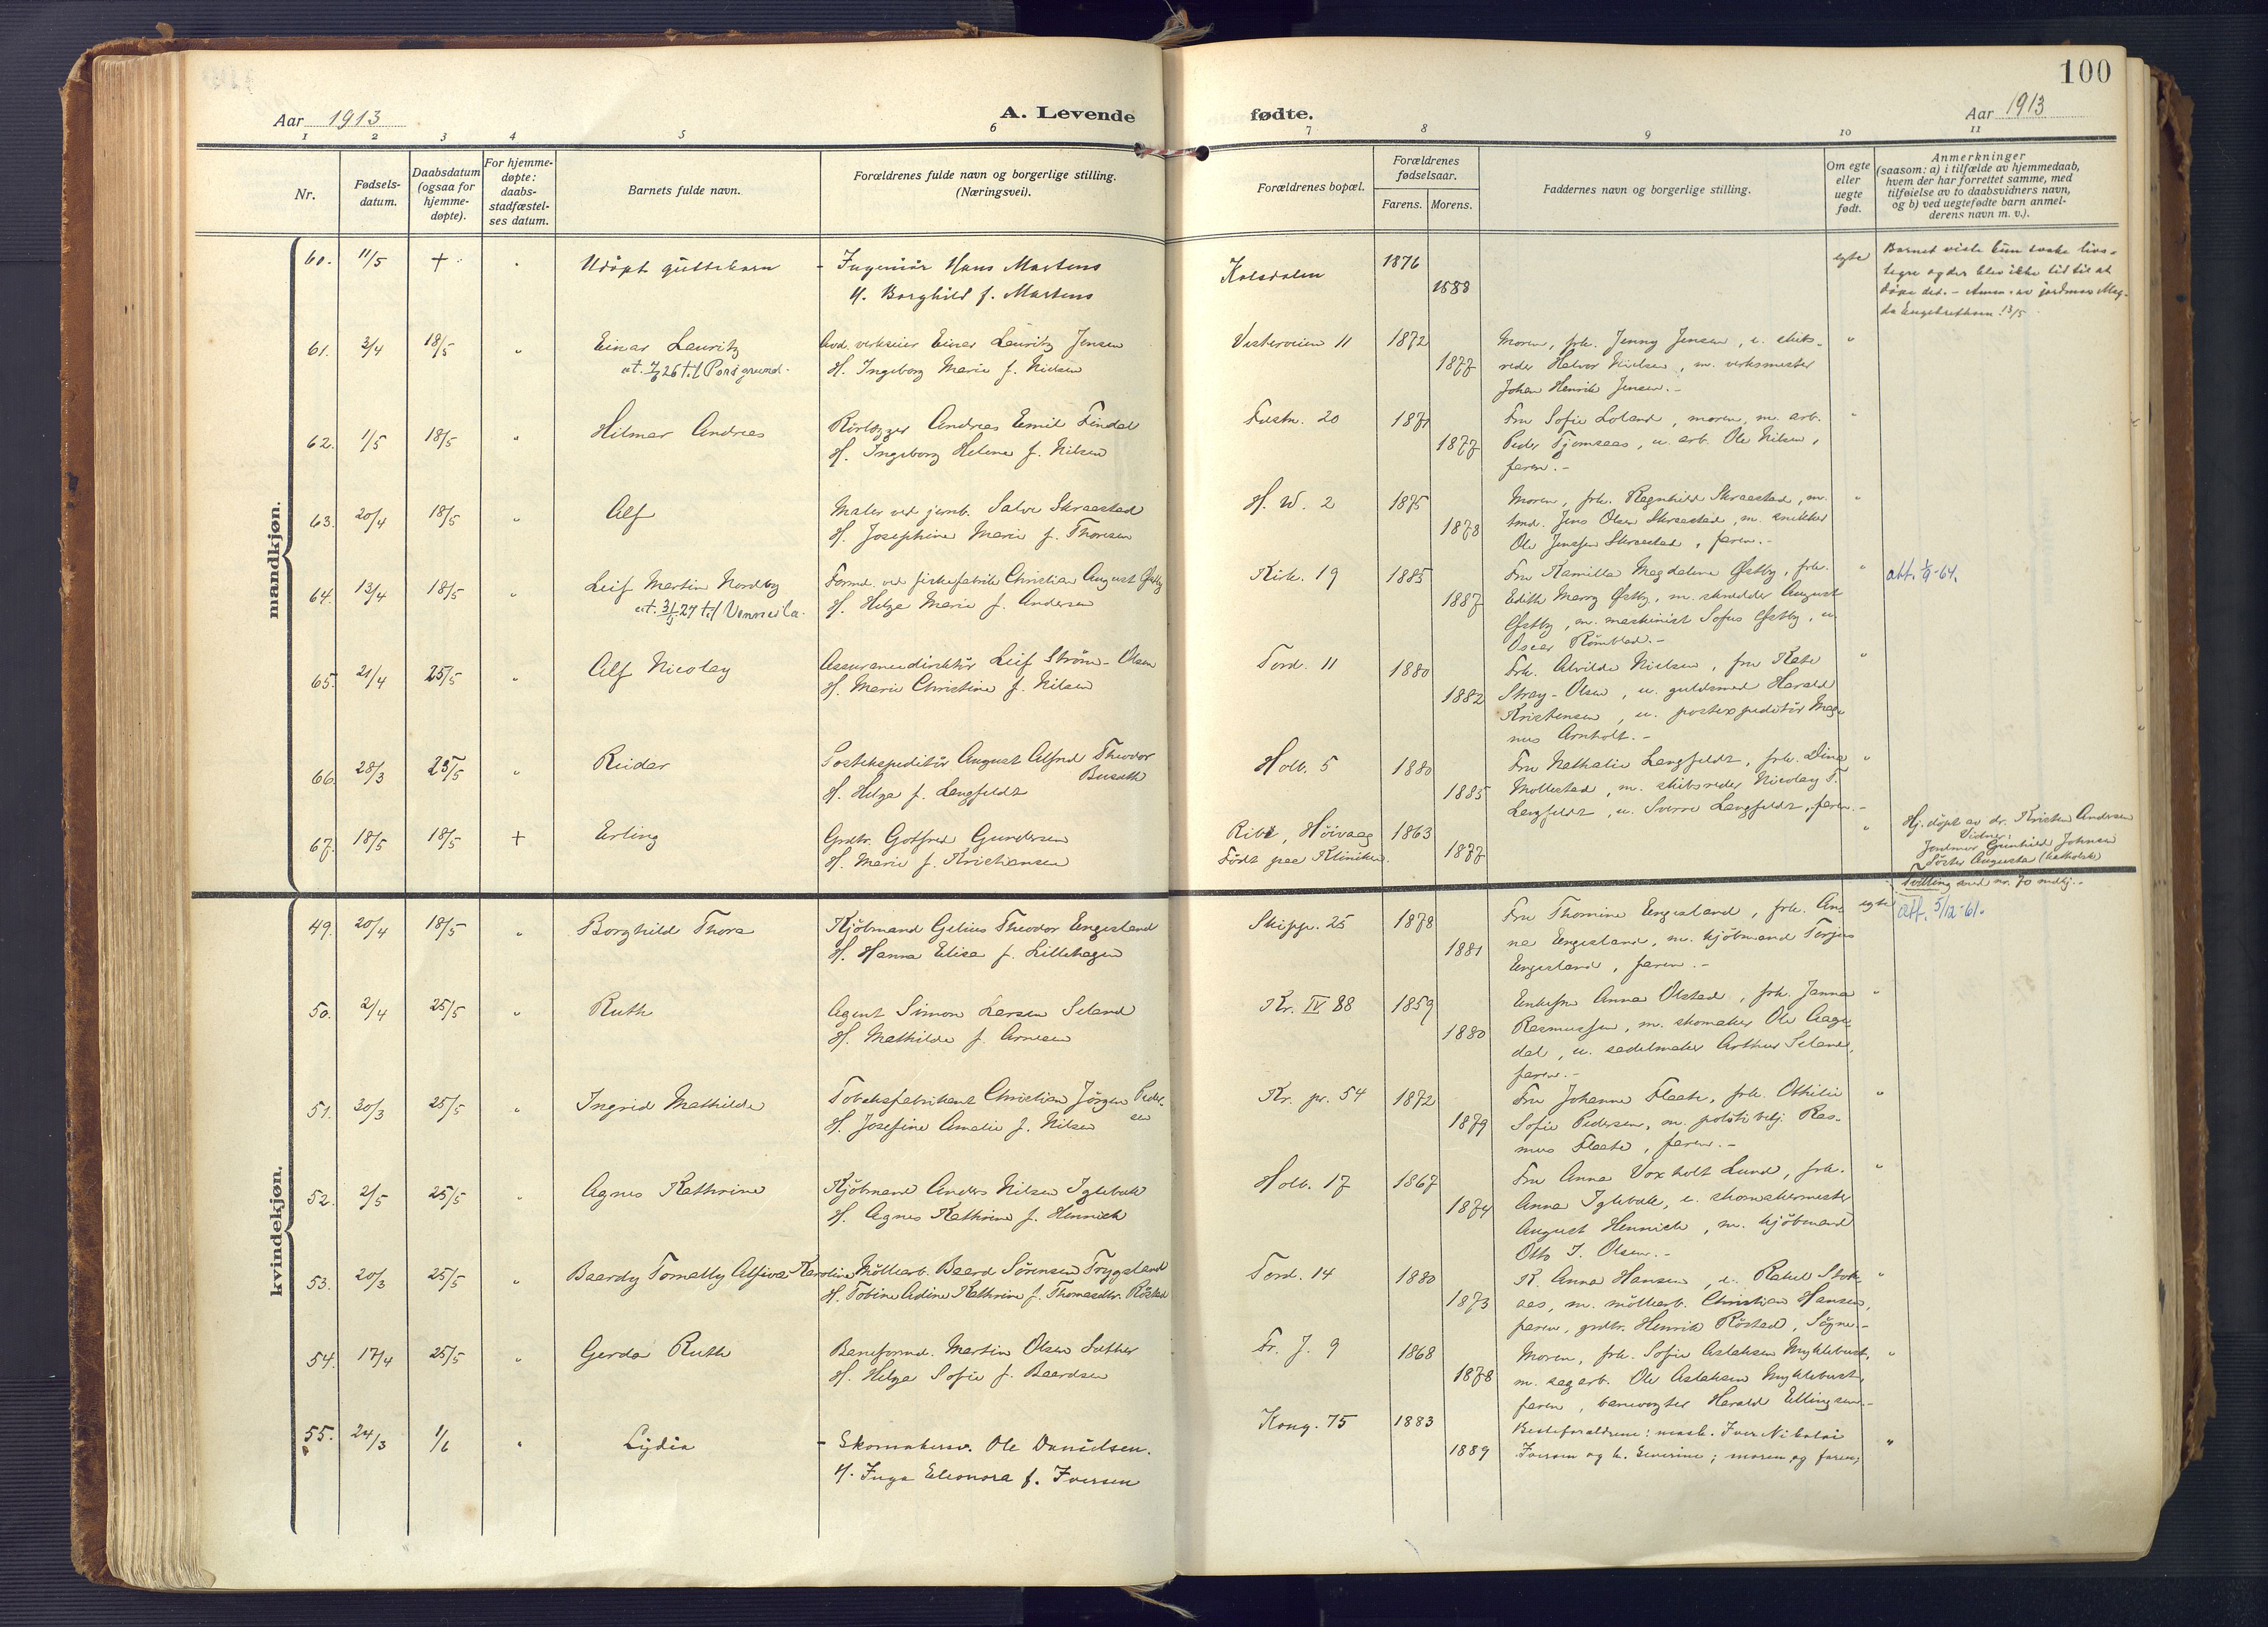 100
Aar 1913
A. Levende
fødte.
Aar 1913
1 2 3 4 5 6 7 8 9 10 11
Nr.
Fødsels-
datum.
Daabsdatum
(ogsaa for
hjemme-
døpte).
For hjemme-
døpte:
daabs-
stadfæstel-
ses datum.
Barnets fulde navn.
Forældrenes fulde navn og borgerlige stilling.
(Næringsvei).
Forældrenes bopæl.
Forældrenes
fødselsaar.
Farens. Morens.
Faddernes navn og borgerlige stilling.
Om egte
eller
uegte
født.
Anmerkninger
(saasom: a) i tilfælde av hjemmedaab,
hvem der har forrettet samme, med
tilføielse av to daabsvidners navn,
og b) ved uegtefødte barn anmel-
derens navn m. v.).
mandkjøn.
60. 11/5 + Udöpt guttebarn - Ingeniör Hans Martens
H. Borghild f. Martens
Kolsdalen 1876
1883
egte
Barnet viste kun svake livs-
tegn og der blev ikke tid til at
döpe det. - Anm. av jordmor Mag-
da Engebrethsen 13/5
61. 3/4 18/5 " Einar Lauritz
at. 26 t/ Porsgrund.
verkseier Einar Lauritz Jensen
H. Ingeborg Marie f. Nielsen
Vesterveien 11 1872
1877
Moren, frk. Jenny Jensen, u. skibs-
reder Halvor Nielsen, m. verksmester
Johan Henrik Jensen. - "
62. 1/5 18/5 " Hilmar Andreas
Rörlægger Andreas Emil Findal
H. Ingeborg Helene f. Nilsen
Festn. 20 1871
1877
Fru Sofie Loland, moren, m. arb.
Peder Tjomsaas, u. arb. Ole Nilsen,
faren. - "
63. 20/4 18/5 " Alf
Maler ved jernb. Salve Skraastad
H. Josephine Marie f. Thorsen
H. W. 2 1875
1878
Moren, frk. Ragnhild Skraastad, m.
tmd. Jens Olsen Skraastad, m. snikker
Ole Jenssen Skraastad, faren. - "
64. 13/4 18/5 " Leif Martin Nordby
at. 27 t/ Vennesla.
Formd. ved fiskefabrik Christian August Østby
H. Helga Marie f. Andersen
Kirk. 19 1885
1887
Fru Kamilla Magdalene Østby, frk.
Edith Marry Østby, m. skrædder August
Østby, m. maskinist Sofus Østby, u.
Oscar Römblad. - "
att. 1/9-64.
65. 21/4 25/5 " Alf Nicolay
Assurancedirektör Leif Ström-Olsen
H. Marie Christine f. Nilsen
Tord. 11 1880
1882
Frk. Alvilde Nielsen, fru Kate
Stray-Olsen, u. guldsmed Harald
Kristensen, u. postexpeditör Mag-
nus Arnholt. - "
66. 28/3 25/5 " Reidar
Postekspeditör August Alfred Theodor
Busuth
H. Helga f. Langfeldt
Holb. 5 1880
1885
Fru Nathalie Langfeldt, frk. Dina
Mollestad, m. skibsreder Nicolay T.
Langfeldt, u. Sverre Langfeldt, faren. - "
67. 18/5 18/5 + Erling
Grdbr. Gotfred Gundersen
H. Marie f. Kristiansen
Ribe, Höivaag
Födt paa Kliniken. 1863
1877
"
Hj. döpt av dr. Kristen Andersen
Vidner:
Jordmor Gunhild Johnsen
Söster Augusta (katholsk)
Tvilling med nr. 70 mdkj. -
kvindekjøn.
49. 20/4 18/5 " Borghild Thora
Kjöbmand Gelius Theodor Engesland
H. Hanna Elisa f. Lillehagen
Skippr. 25 1878
1881
Fru Thomine Engesland, frk. An-
na Engesland, m. kjöbmand Torjus
Engesland, faren. -
egte
att. 5/12-61.
50. 2/4 25/5 " Ruth
Agent Simon Larsen Seland
H. Mathilde f. Arnesen
Kr. IV 88 1859
1880
Enkefru Anna Olstad, frk. Janna
Rasmussen, m. skomaker Ole Aage-
dal, u. sadelmaker Arthur Seland,
faren. - "
51. 30/3 25/5 " Ingrid Mathilde
Tobaksfabrikant Christian Jörgen Peder-
sen
H. Josefine Amalie f. Nilsen
Kr. pr. 54 1872
1879
Fru Johanne Flaate, frk. Othilie
Sofie Pedersen, m. politibetj. Ras-
mus Flaate, faren. - "
52. 2/5 25/5 " Agnes Kathrine
Kjöbmand Anders Nilsen Iglebæk
H. Agnes Kathrine f. Hennich
Holb. 17 1867
1874
Fru Anna Voxholt Lund, frk.
Anna Iglebæk, u. skomakermester
August Hennich, m. kjöbmand
Otto J. Olsen. - "
53. 20/3 25/5 " Baardy Tomally Alfiva Karoline
Möllearb. Baard Sørensen Trygsland
H. Tobine Adine Kathrine f. Thomasdtr. Röstad
Tord. 14 1880
1873
K. Anna Hansen, u. Rakel Stok-
aas, m. möllearb. Christian Hansen,
faren, grdbr. Henrik Röstad, Sögne. - "
54. 17/4 25/5 " Gerda Ruth
Baneformd. Martin Olsen Sæther
H. Helga Sofie f. Baardsen
Fr. J. 9 1868
1878
Moren, frk. Sofie Aslaksen Myklebust,
m. sagarb. Ole Aslaksen Myklebust,
faren, banevogter Harald Ellingsen. - "
55. 24/3 1/6 " Lydia
- Skomakersv. Ole Danielsen.
H. Inga Eleonora f. Iversen
Kong. 75 1883
1889
Besteforældrene: mask. Iver Nikolai
Iversen og h. Severine; moren og faren; "